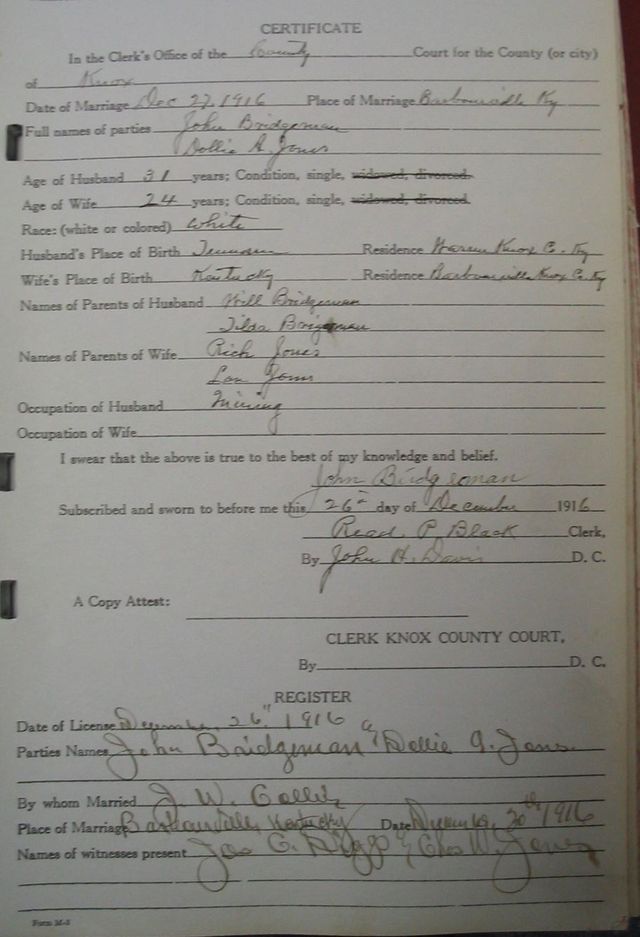 CERTIFICATE
In the Clerk's Office of the County Court for the County (or city)
of Knox
Date of Marriage Dec 27, 1916 Place of Marriage Barbourville Ky
Full names of parties John Bridgeman
Dollie A. Jones
Age of Husband 31 years; Condition, single, widowed, divorced.
Age of Wife 24 years; Condition, single, widowed, divorced.
Race: (white or colored) White
Husband's Place of Birth Residence Warren Knox Co. Ky
Wife's Place of Birth Kentucky Residence Barbourville Knox Co. Ky
Names of Parents of Husband Will Bridgeman
Tilda Bridgeman
Names of Parents of Wife Rich Jones
Jones
Occupation of Husband Mining
Occupation of Wife
I swear that the above is true to the best of my knowledge and belief.
John Bridgeman
Subscribed and sworn to before me this 26" day of December 1916
Read P. Black Clerk,
By John H. Davis D. C.
A Copy Attest:
CLERK KNOX COUNTY COURT,
By D. C.
REGISTER
Date of License December 26" 1916
Parties Names John Bridgeman & Dollie A. Jones
By whom Married J. W.
Place of Marriage Barbourville Kentucky Date December 1916
Names of witnesses present Jones
Form M-3